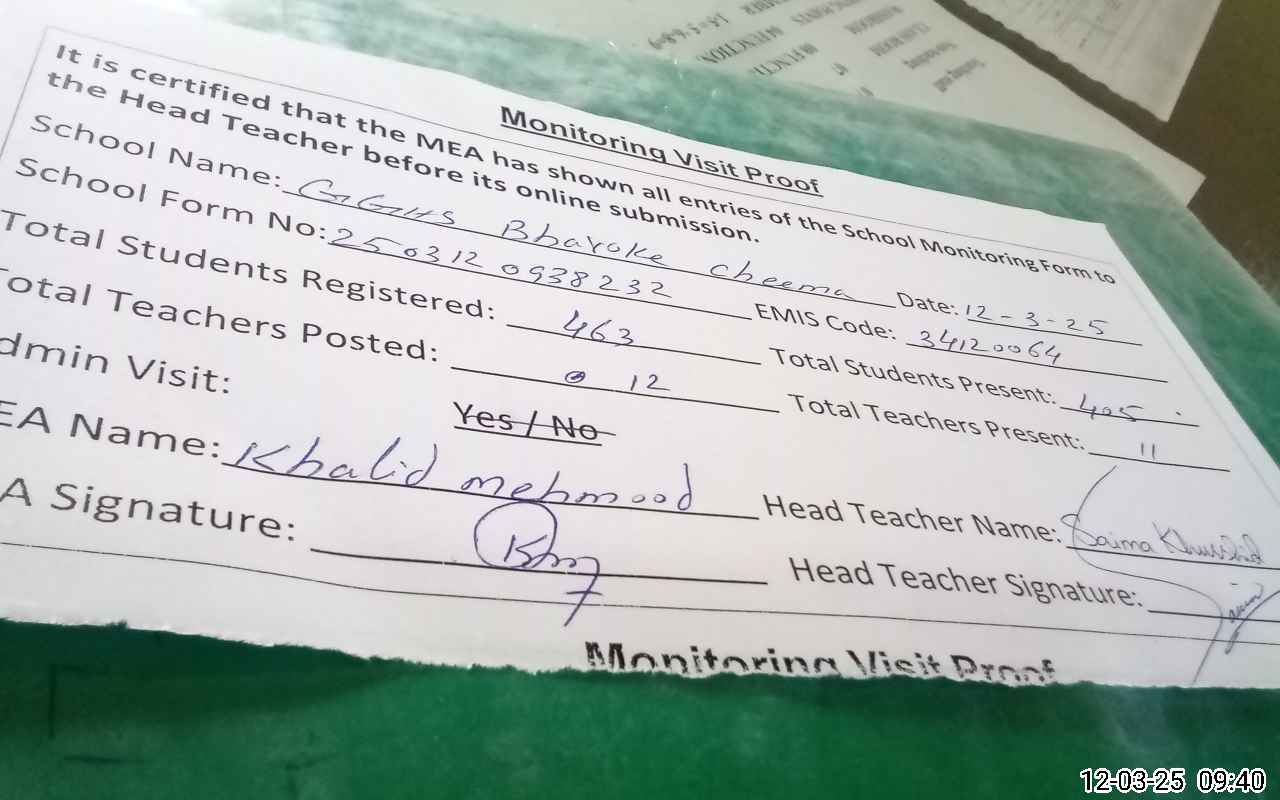 Monitoring Visit Proof
It is certified that the MEA has shown all entries of the School Monitoring Form to
the Head Teacher before its online submission.
School Name: GGHS Bharoke cheema Date: 12-3-25
School Form No: 250312 0938232 EMIS Code: 34120064
Total Students Registered: 463 Total Students Present: 405
otal Teachers Posted: 12 Total Teachers Present: 11
dmin Visit: Yes / No
EA Name: Khalid mehmood Head Teacher Name: Saima Khurshid
A Signature: Head Teacher Signature:
Monitoring Visit Proof
12-03-25 09:40